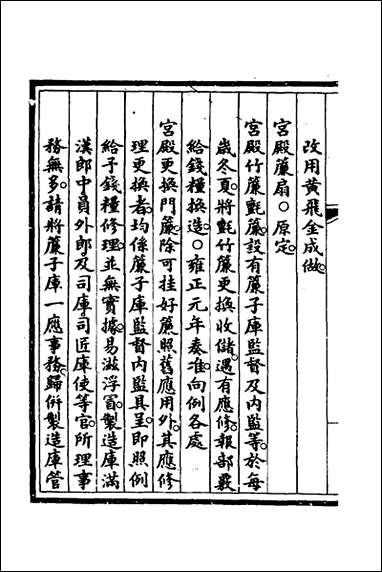 改用黃飛金成做
宮殿簾扇○原定
宮殿竹簾氈簾設有簾子庫監督及內監等於每
歲冬夏將氈竹簾更換收儲遇有應修報部覈
給錢糧換造○雍正元年奏准向例各處
宮殿更換門簾除可挂好簾照舊應用外其應修
理更換者均係簾子庫監督內監具呈即照例
給予錢糧修理並無實據易滋浮冒製造庫滿
漢郎中員外郎及司庫司匠庫使等官所理事
務無多請將簾子庫一應事務歸併製造庫管